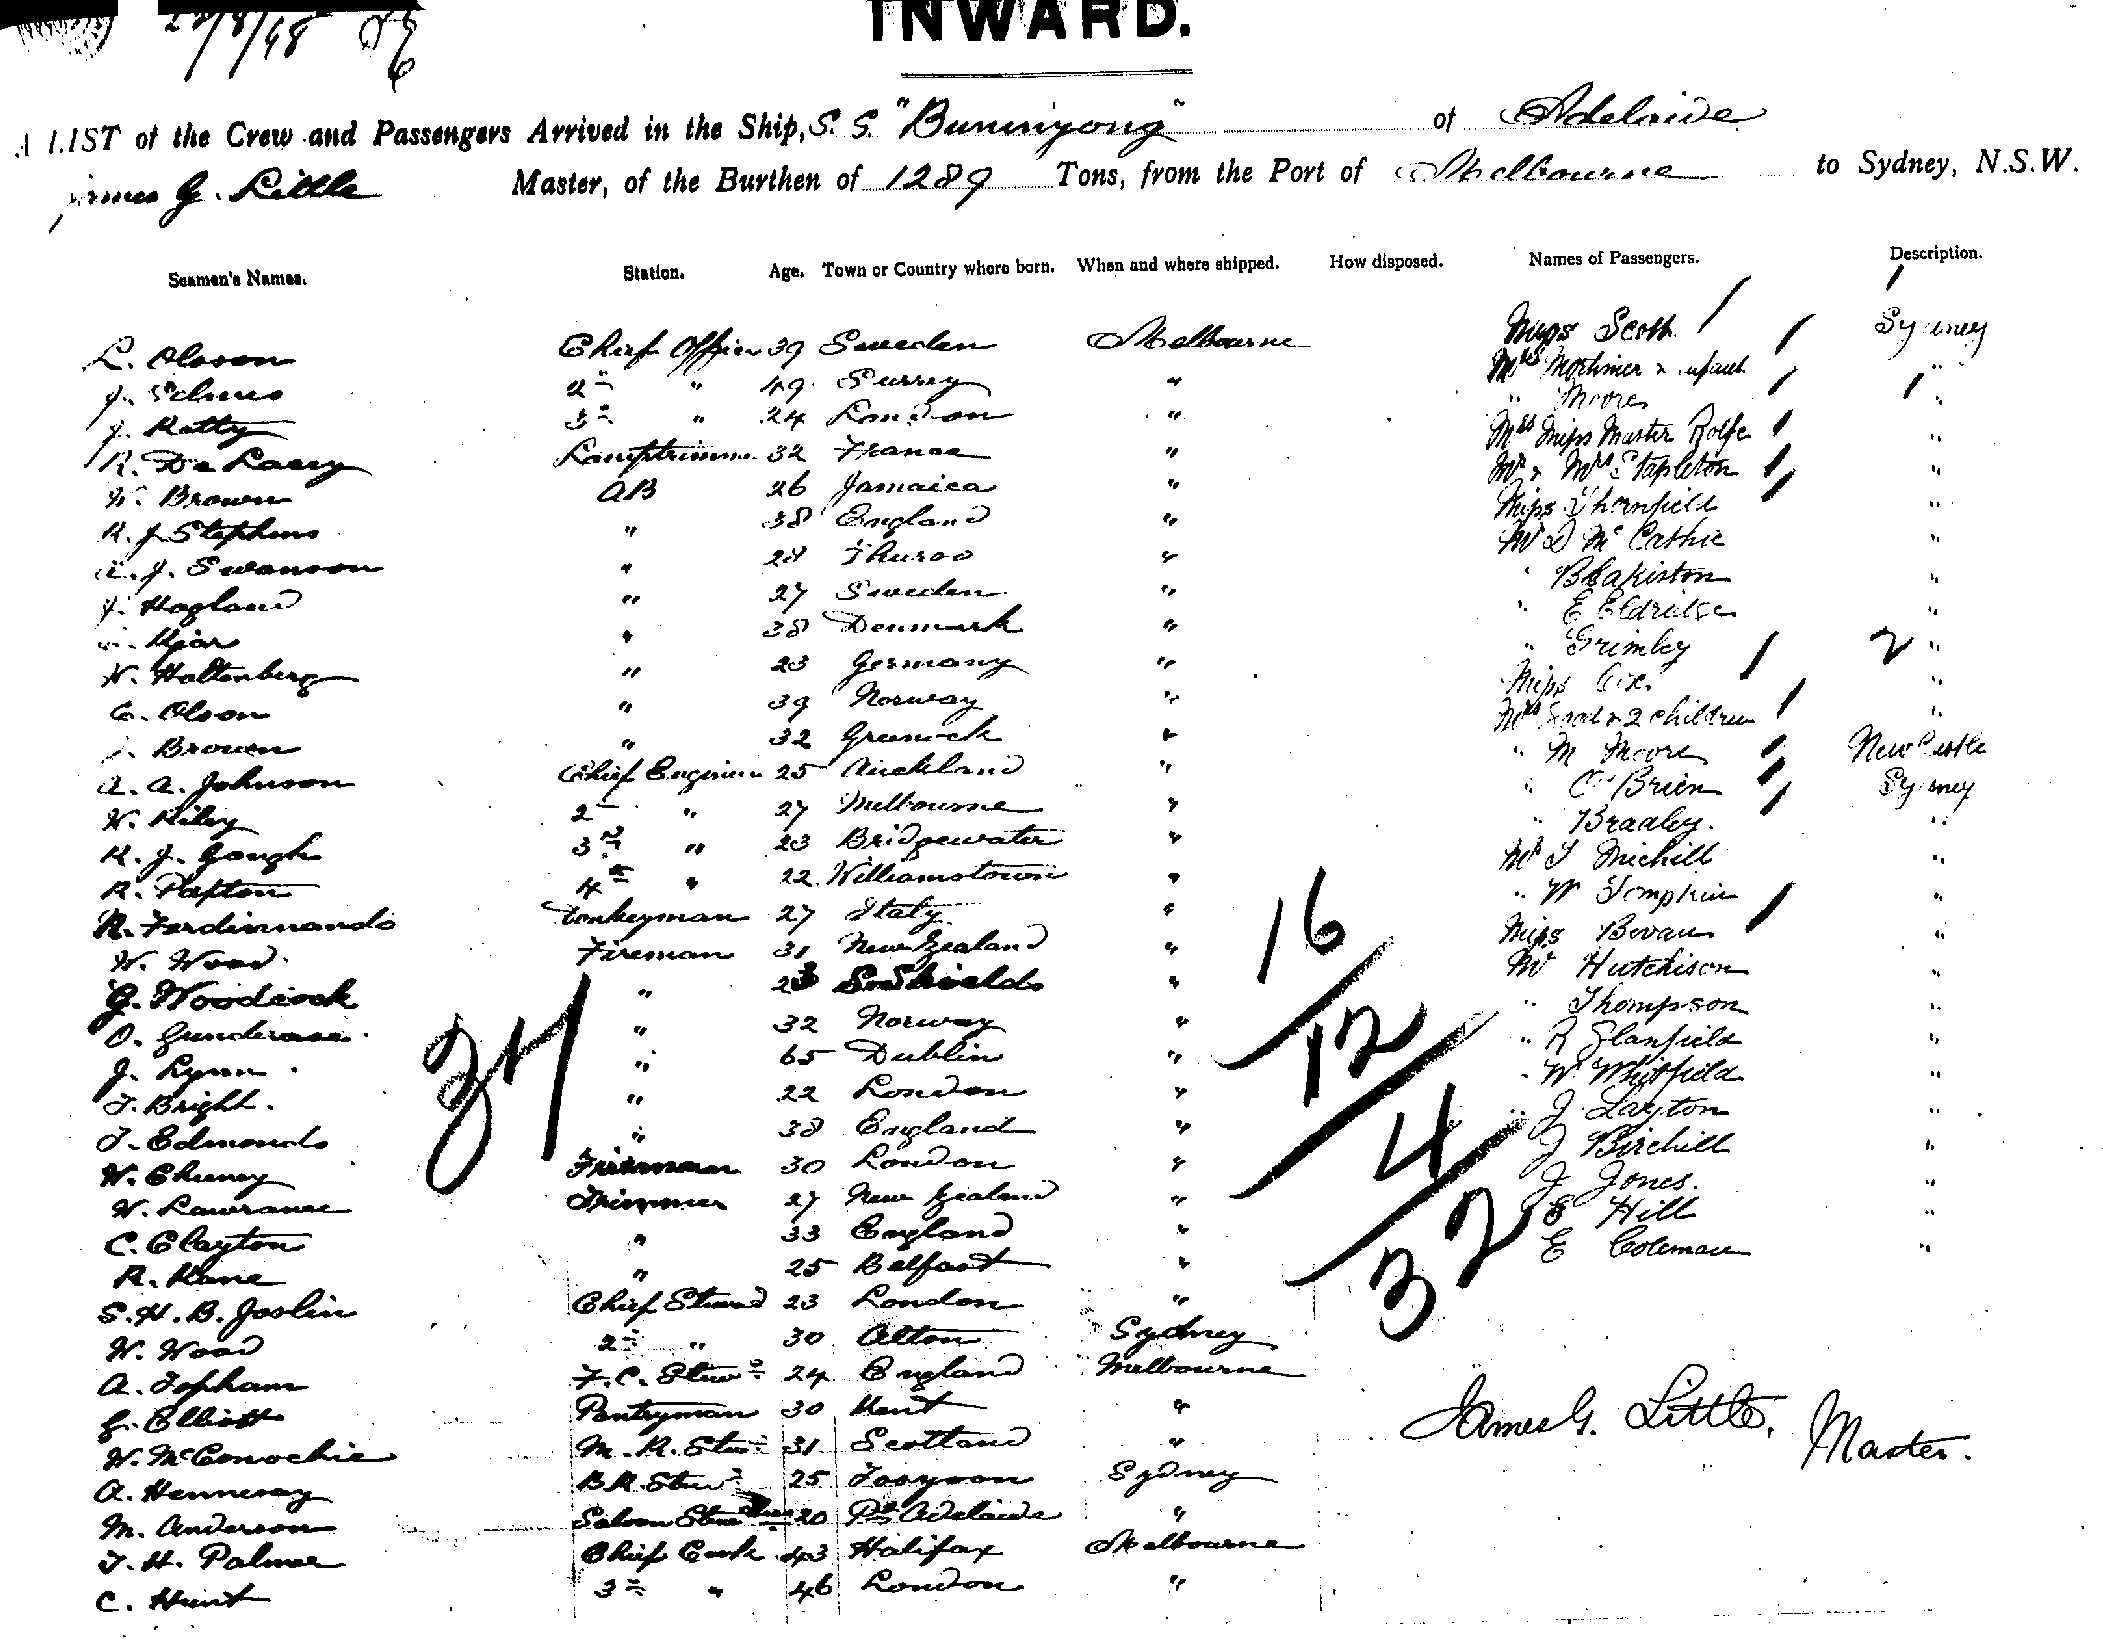 22/8/98
INWARD.
A LIST of the Crew and Passengers Arrived in the Ship, S.S. "Buninyong" of Adelaide
James G. Little Master, of the Burthen of 1289 Tons, from the Port of Melbourne to Sydney, N.S.W.
Seamen's Names. Station. Age. Town or Country where born. When and where shipped. How disposed. Names of Passengers. Description.
L. Olsson Chief Officer 39 Sweden Melbourne Miss Scott Sydney
J. 2nd " 49 Surrey " Mrs Mortimer & infant "
J. Ratty 3rd " 24 London " " Moore "
R. De Lacey Lamptrimmer 32 France " Mrs Miss Master Rolfe "
W. Brown AB 26 Jamaica " Mr & Mrs Stapleton "
R. J Stephens " 38 England " Miss Thornfield "
J. Swanson " 28 Thurso " Mr D McCathie "
J. Hagland " 27 Sweden " " Blakiston "
Kjar " 38 Denmark " " E Eldridge "
W. Haltenberg " 23 Germany " " Grimley "
C. Olson " 39 Norway " Miss Cox "
Brown " 32 Greenock " Mrs & 2 children "
A. A. Johnson Chief Engineer 25 Auckland " " M Moore NewCastle
W. Riley 2nd " 27 Melbourne " " O'Brien Sydney
R. J. Gough 3rd " 23 Bridgewater " " Bradley "
R. Paxton 4th " 22 Williamstown " Mr T Michill "
R. Ferdinnando Donkeyman 27 Italy " " W Tompkin "
W. Wood Fireman 31 New Zealand " Miss Bevan "
G. Woodcock " 23 S. Shields " Mr Hutchison "
O. " 32 Norway " " Thompson "
J. Lynn " 65 Dublin " " R Glanfield "
T. Bright " 22 London " " W Whitfield "
T. Edmonds " 38 England " " J Layton "
W. Cheney Fireman 30 London " J Birchill "
W. Lawrance Trimmer 27 New Zealand " J Jones "
C. Clayton " 33 England " E Hill "
R. Kane " 25 Belfast " E Coleman "
S. H. B. Joslin Chief Steward 23 London "
W. Wood 2nd " 30 Alton Sydney
A. Topham F. C. Stewd 24 England Melbourne
G. Elliott Pantryman 30 Kent "
W. McConochie M. R. Stewd 31 Scotland "
A. Hennesay B.R. Stewd 25 Sydney
M. Anderson Saloon 20 Pt Adelaide "
T. H. Palmer Chief Cook 43 Halifax Melbourne
C. Hunt 2nd " 46 London "
37
16
12
4
32
James G. Little, Master.